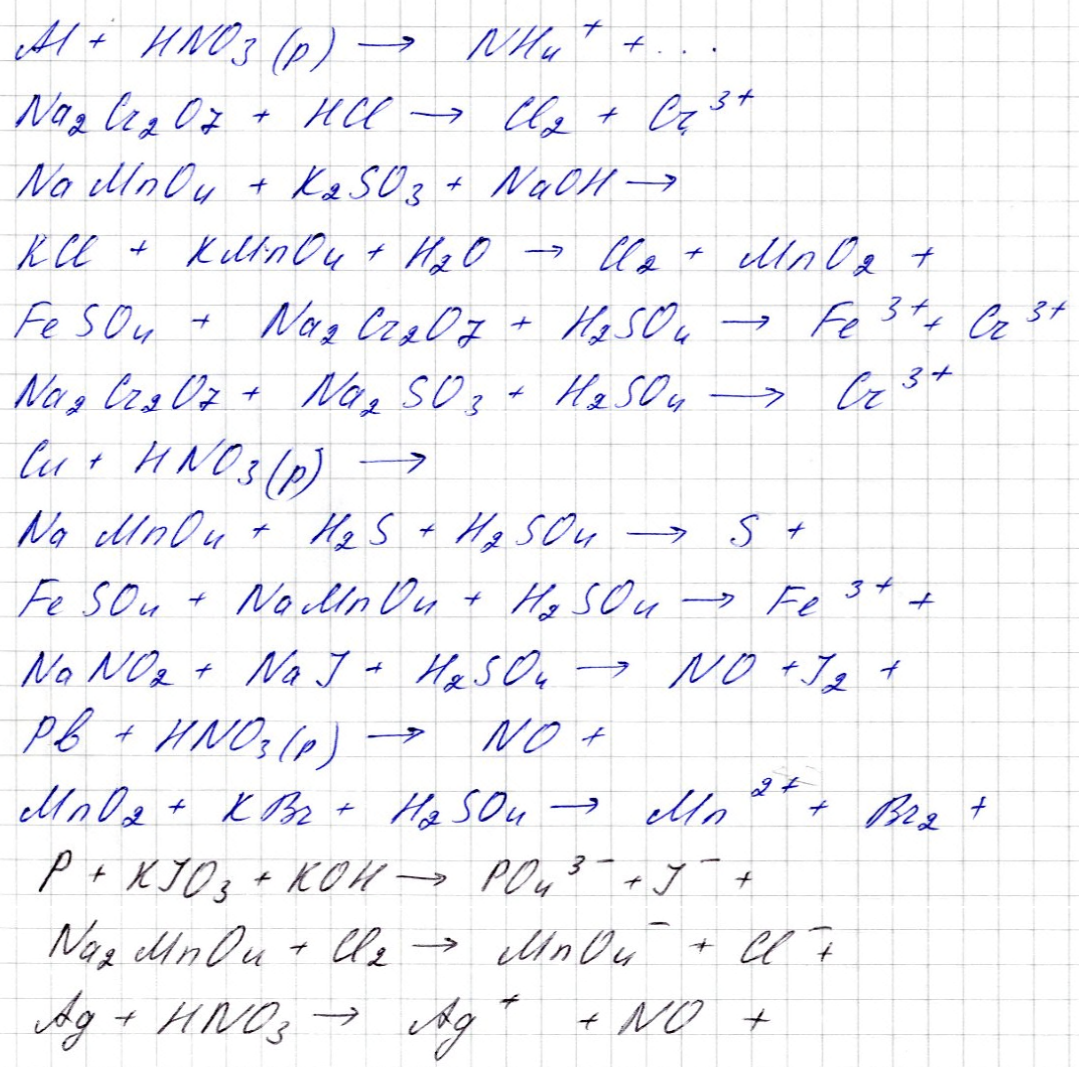 Al + HNO₃(р) → NH₄⁺ + ...
Na₂Cr₂O₇ + HCl → Cl₂ + Cr³⁺
NaMnO₄ + K₂SO₃ + NaOH →
KCl + KMnO₄ + H₂O → Cl₂ + MnO₂ +
FeSO₄ + Na₂Cr₂O₇ + H₂SO₄ → Fe³⁺ + Cr³⁺
Na₂Cr₂O₇ + Na₂SO₃ + H₂SO₄ → Cr³⁺
Cu + HNO₃(р) →
NaMnO₄ + H₂S + H₂SO₄ → S +
FeSO₄ + NaMnO₄ + H₂SO₄ → Fe³⁺ +
NaNO₂ + NaJ + H₂SO₄ → NO + J₂ +
Pb + HNO₃(р) → NO +
MnO₂ + KBr + H₂SO₄ → Mn²⁺ + Br₂ +
P + KJO₃ + KOH → PO₄³⁻ + J⁻ +
Na₂MnO₄ + Cl₂ → MnO₄⁻ + Cl⁻ +
Ag + HNO₃ → Ag⁺ + NO +